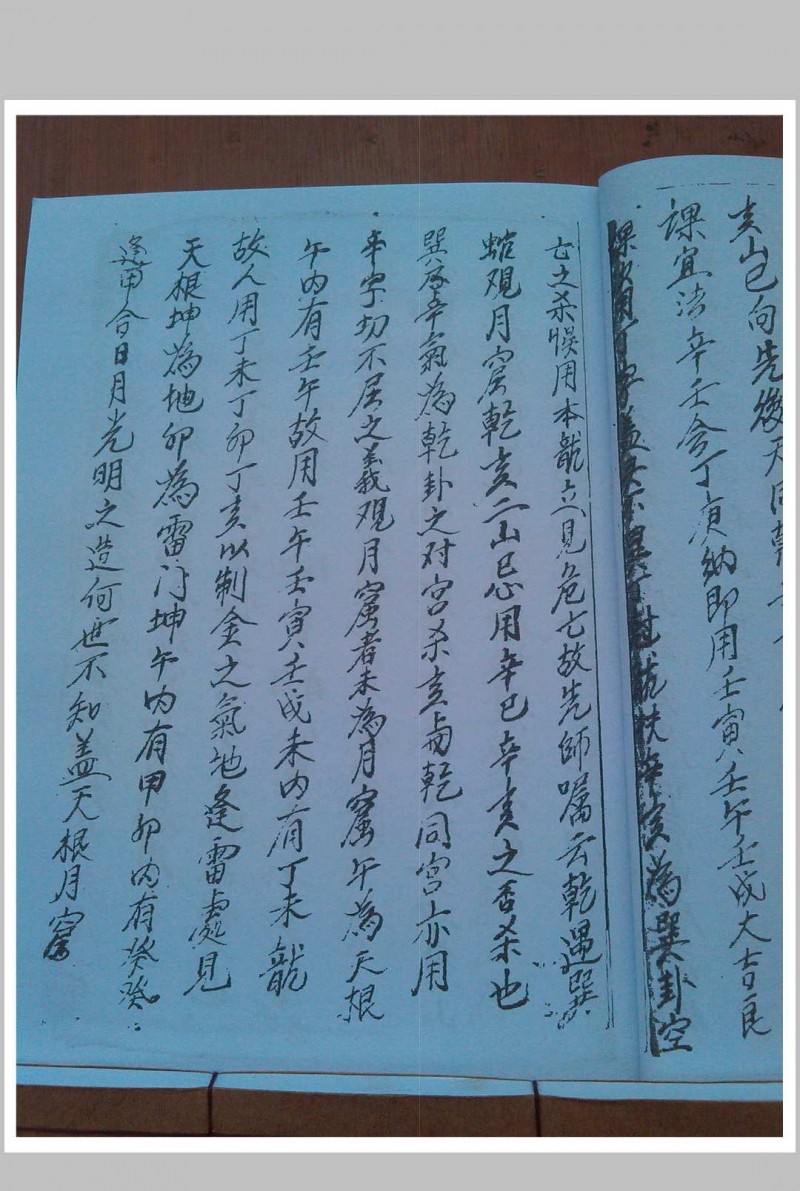 亥山巳向先後天同乾
課宜法辛壬會丁庚納即用壬寅壬午壬戍大吉良
為巽卦空
亡之杀悞用本龍立見危亡故先師嘱云乾遇巽
觀月窟乾亥二山忌用辛巳辛亥之否杀也
巽辛氣為乾卦之对宫杀亥与乾同宫亦用
辛字切不居之義观月窟者未為月窟午為天根
午内有壬午故用壬午壬寅壬戍未内有丁未龍
故人用丁未丁卯丁亥以制金之氣地逢雷處見
天根坤為地卯為雷门坤午内有甲卯内有癸癸
逢甲合日月光明之造何世不知盖天根月窟